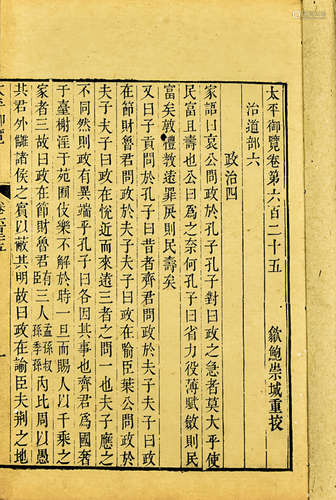 太平御覽卷第六百二十五
歙鮑崇城重挍
治道部六
政治四
家語曰哀公問政於孔子孔子對曰政之急者莫大乎使
民富且壽也公曰爲之奈何孔子曰省力役薄賦斂則民
富矣敦禮教遠罪戾則民壽矣
又曰子貢問於孔子曰昔者齊君問政於夫子夫子曰政
在節財魯君問政於夫子夫子曰政在諭臣葉公問政於
夫子夫子曰政在恱近而來遠三者之問一也夫子應之
不同然則政有異端乎孔子曰各因其事也齊君爲國奢
乎臺榭淫于苑囿伎樂不解於時一旦而賜人以千乘之
家者三故曰政在節財魯君有臣三人孟孫叔孫季孫内比周以愚
其君外距諸侯之賓以蔽其明故曰政在諭臣夫荆之地